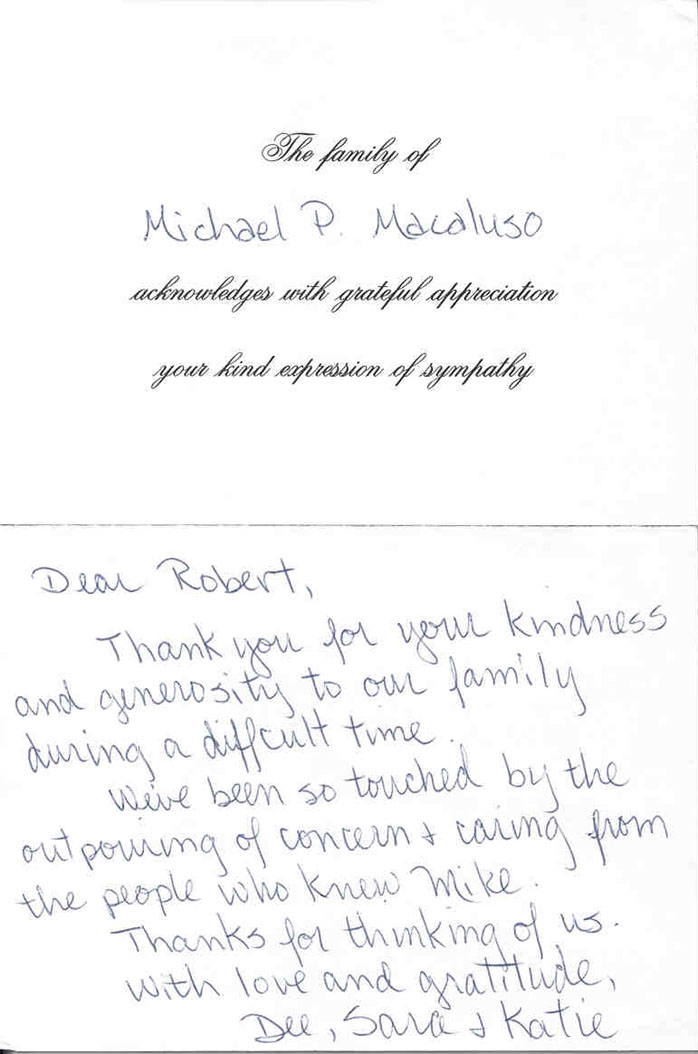 The family of
Michael P. Macaluso
acknowledges with grateful appreciation
your kind expression of sympathy
Dear Robert,
Thank you for your kindness
and generosity to our family
during a difficult time.
We've been so touched by the
outpouring of concern & caring from
the people who knew Mike.
Thanks for thinking of us.
With love and gratitude,
Dee, Sara & Katie